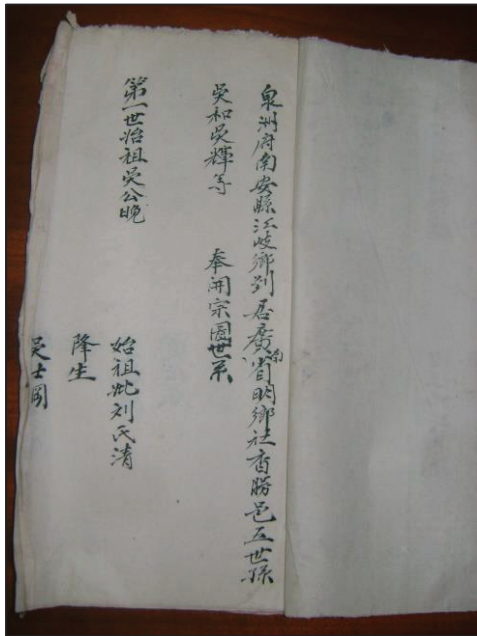 泉州府南安縣江岐鄉別居廣南省明鄉社香勝邑五世孫
吳和吳輝等　奉開宗圖世系
第一世始祖吳公晚
始祖妣刘氏清
降生
吳士岡